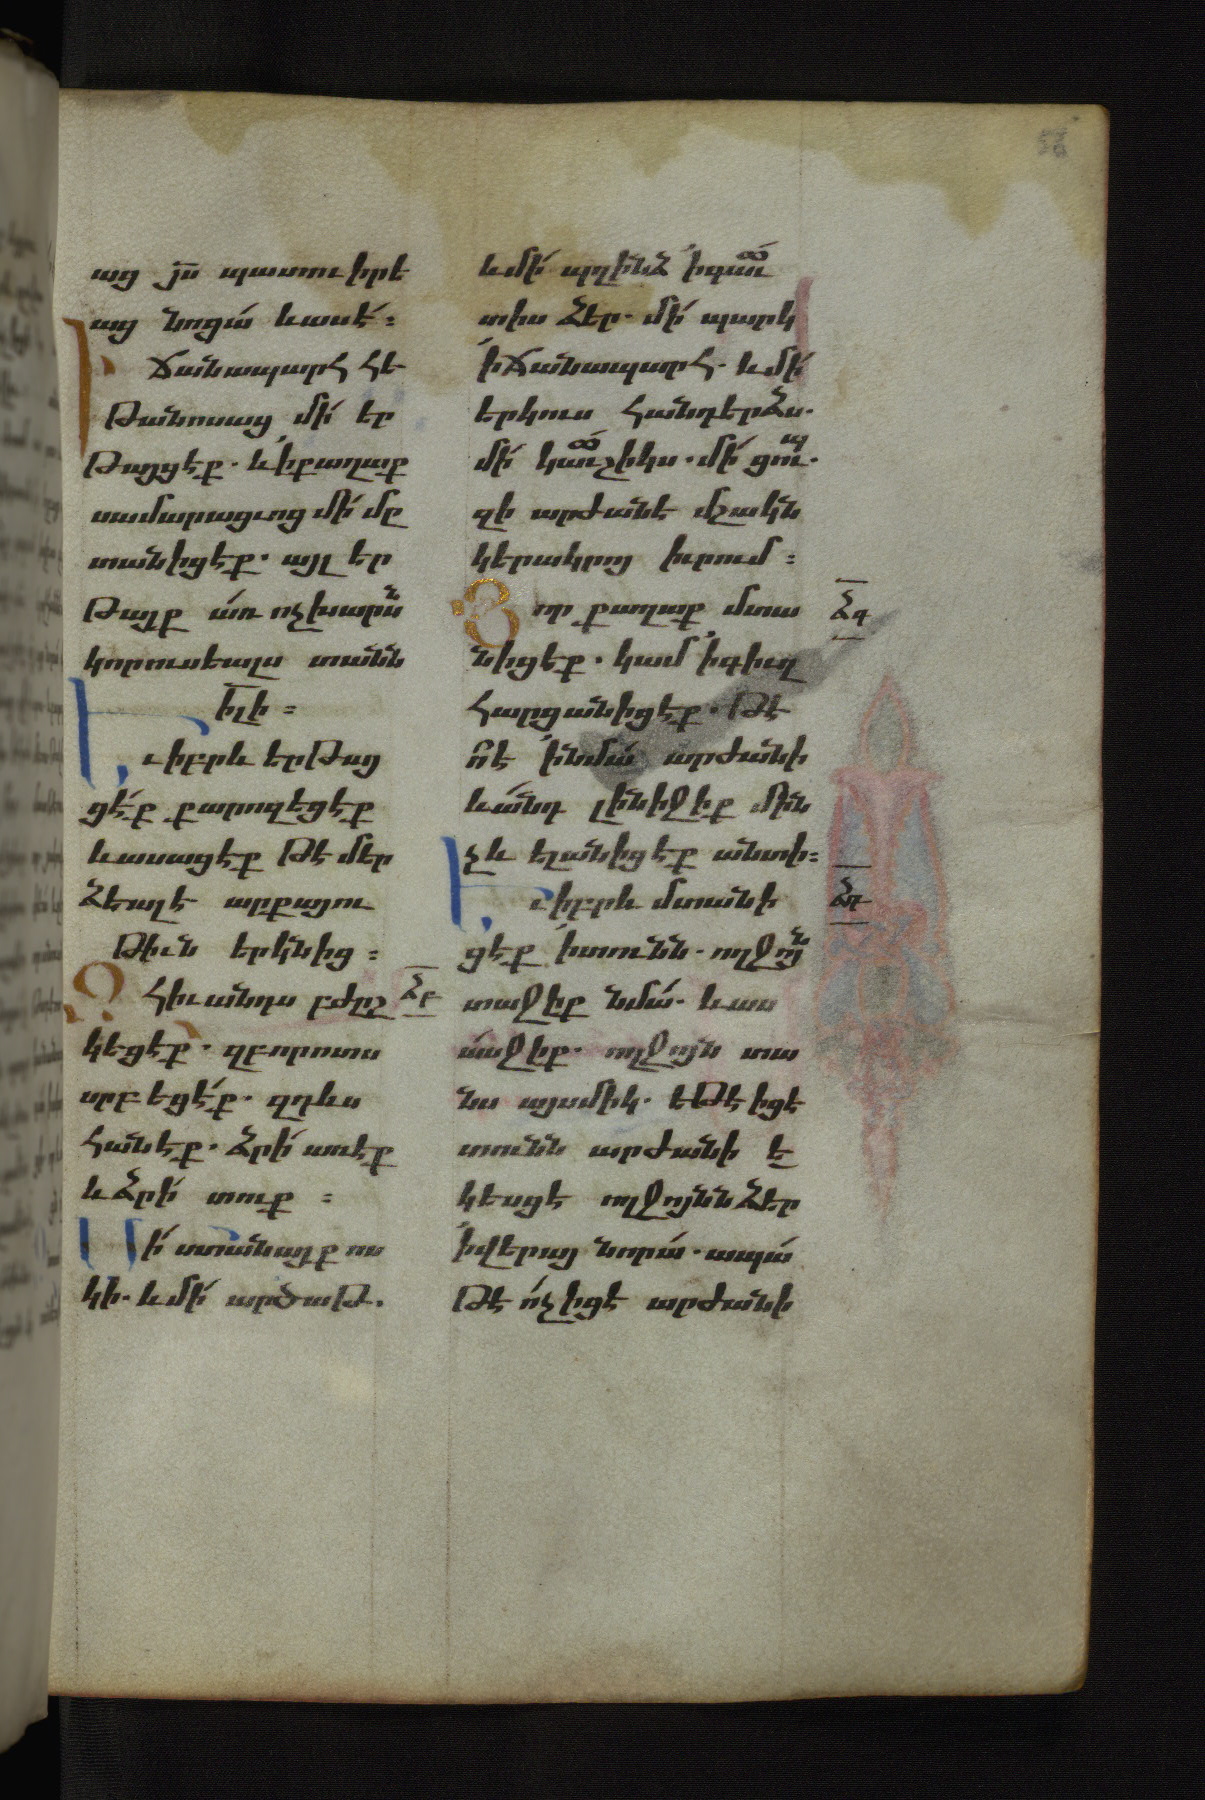 աց յս պատուիրե
աց նոցա և ասէ ։
Ի ճանապարհ հե
թանոսաց մի եր
թայցէք . և ի քաղաք
սամարացւոց մի մը
տանիցէք . այլ եր
թայք առ ոչխարսն
կորուսեալս տանն
իլի ։
Եւ իբրև երթայ
ցէք քարոզեցէք
և ասացէք թէ մեր
ձեալ է արքայու
թիւն երկնից ։
Զհիւանդս բժըշ
ճբ
կեցէք . զբորոտս
սրբեցէք . զդևս
հանէք . ձրի առէք
և ձրի տուք ։
Մի ստանայք ոս
կի . և մի արծաթ .
և մի պղինձ ի գաւ
տիս ձեր . մի պարկ
ի ճանապարհ . և մի
երկուս հանդերձս .
մի կաւշիկս . մի ցու .
զի արժանէ մշակն
կերակրոյ իւրում ։
Յոր քաղաք մտա
ճգ
նիցէք . կամ ի գիւղ
հարցանիցէք . թէ
ո՞ է ի նմա արժանի
և անդ լինիջիք մին
չև ելանիցէք անտի ։
Եւ իբրև մտանի
ճդ
ցէք ի տունն . ողջոյն
տաջիք նմա . և աս
ասջիք . ողջոյն տա
նս այսմիկ . եթէ իցէ
տունն արժանի է
կեսցէ ողջոյնն ձեր
ի վերայ նորա . ապա
թէ ոչ իցէ արժանի